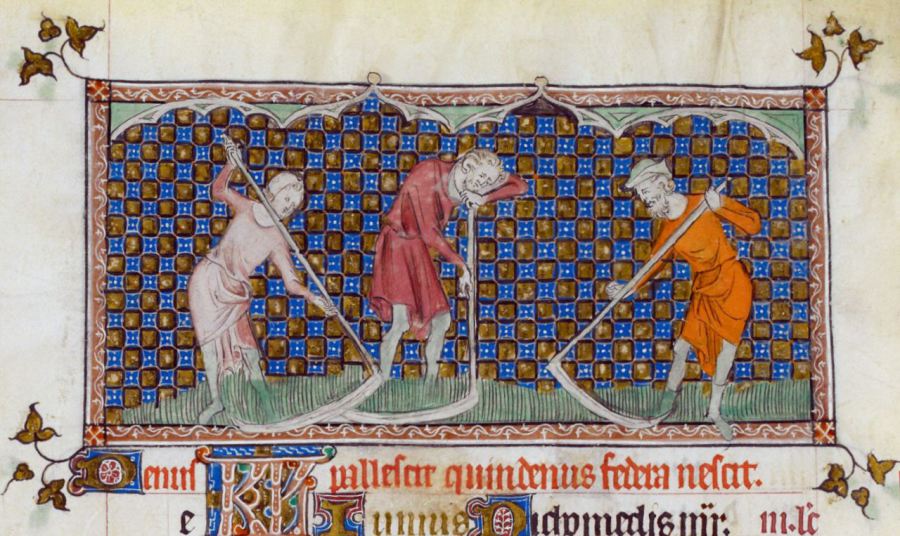 Denus KL pallescit quindenus federa nescit.
e Iunius Nichomedis mr. iii. lc